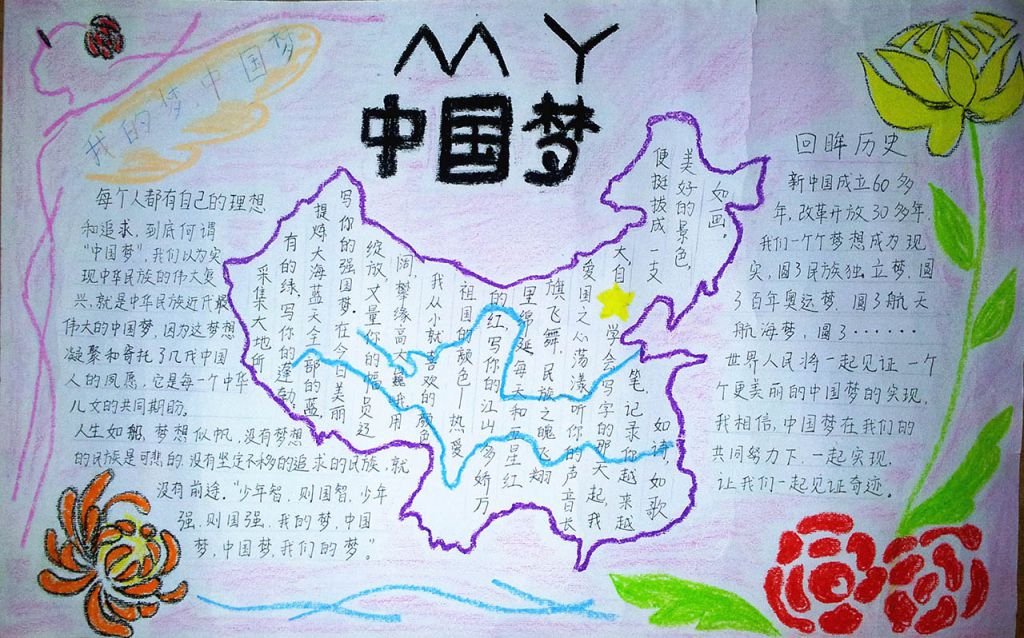 MY
中国梦
我的條，中国梦
每个人都有自己的理想
和追求，到底何谓
“中国梦”，我们以为实
现中华民族的伟大复
兴，就是中华民族近代最
伟大的中国梦，因为这梦想
凝聚和寄托了几代中国
人的夙愿，它是每一个中华
儿女的共同期盼。
人生如船，梦想似帆，没有梦想
的民族是可悲的，没有坚定不移的追求的民族，就
没有前途。“少年智，则国智，少年
强，则国强，我的梦，中国
梦，中国梦，我们的梦。”
采集大地所
有的绿，写你的蓬勃
提炼大海蓝天全部的蓝
写你的强国梦。在今日美丽
绽放，丈量你的幅员辽
阔，攀缘高大巍峨用
我从小就喜欢的颜色
祖国的颜色—热爱
的红，写你的江山多娇万
里绵延每天和五星红
旗飞舞，民族之魄飞翔
爱国之心荡漾听你的声音长
大，自学会写字的那天起，我
便挺拔成一支笔，记录你越来越
美好的景色，如诗，如歌
如画，
回眸历史
新中国成立60多
年，改革开放30多年，
我们一个个梦想成为现
实，圆了民族独立梦，圆
了百年奥运梦，圆了航天
航海梦，圆了········
世界人民将一起见证一个
个更美丽的中国梦的实现，
我相信，中国梦在我们的
共同努力下一起实现，
让我们一起见证奇迹。